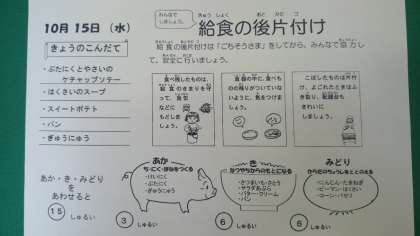 10月 15日 (水)
みんなで
しましょう。
給食の後片付け
きゅう しょく
あと かた づ
きょうのこんだて
給食の後片付けは「ごちそうさま」をしてから、みんなで協力し
て、安全に行いましょう。
・ぶたにくとやさいの
ケチャップソテー
・はくさいのスープ
・スイートポテト
・パン
・ぎゅうにゅう
食べ残したものは、
給食のきまりを守
って、食缶
などに
もどしま
しょう。
食器の中に、食べも
のの残りがついていな
いように、気をつけま
しょう。
こぼしたものは片付
け、よごれたときはふ
き取り、配膳台も
きれいに
しましょう。
あか・き・みどり
を
あわせると
15 しゅるい
あか
ち・にく・ほねをつくる
・けいにく
・ぶたにく
・ぎゅうにゅう
3 しゅるい
き
ねつやちからのもとになる
・さつまいも・さとう
・サラダあぶら
・バター・クリーム
・パン
6 しゅるい
みどり
からだのちょうしをととのえる
・にんじん・たまねぎ
・ピーマン・はくさい
・コーン・パセリ
6 しゅるい